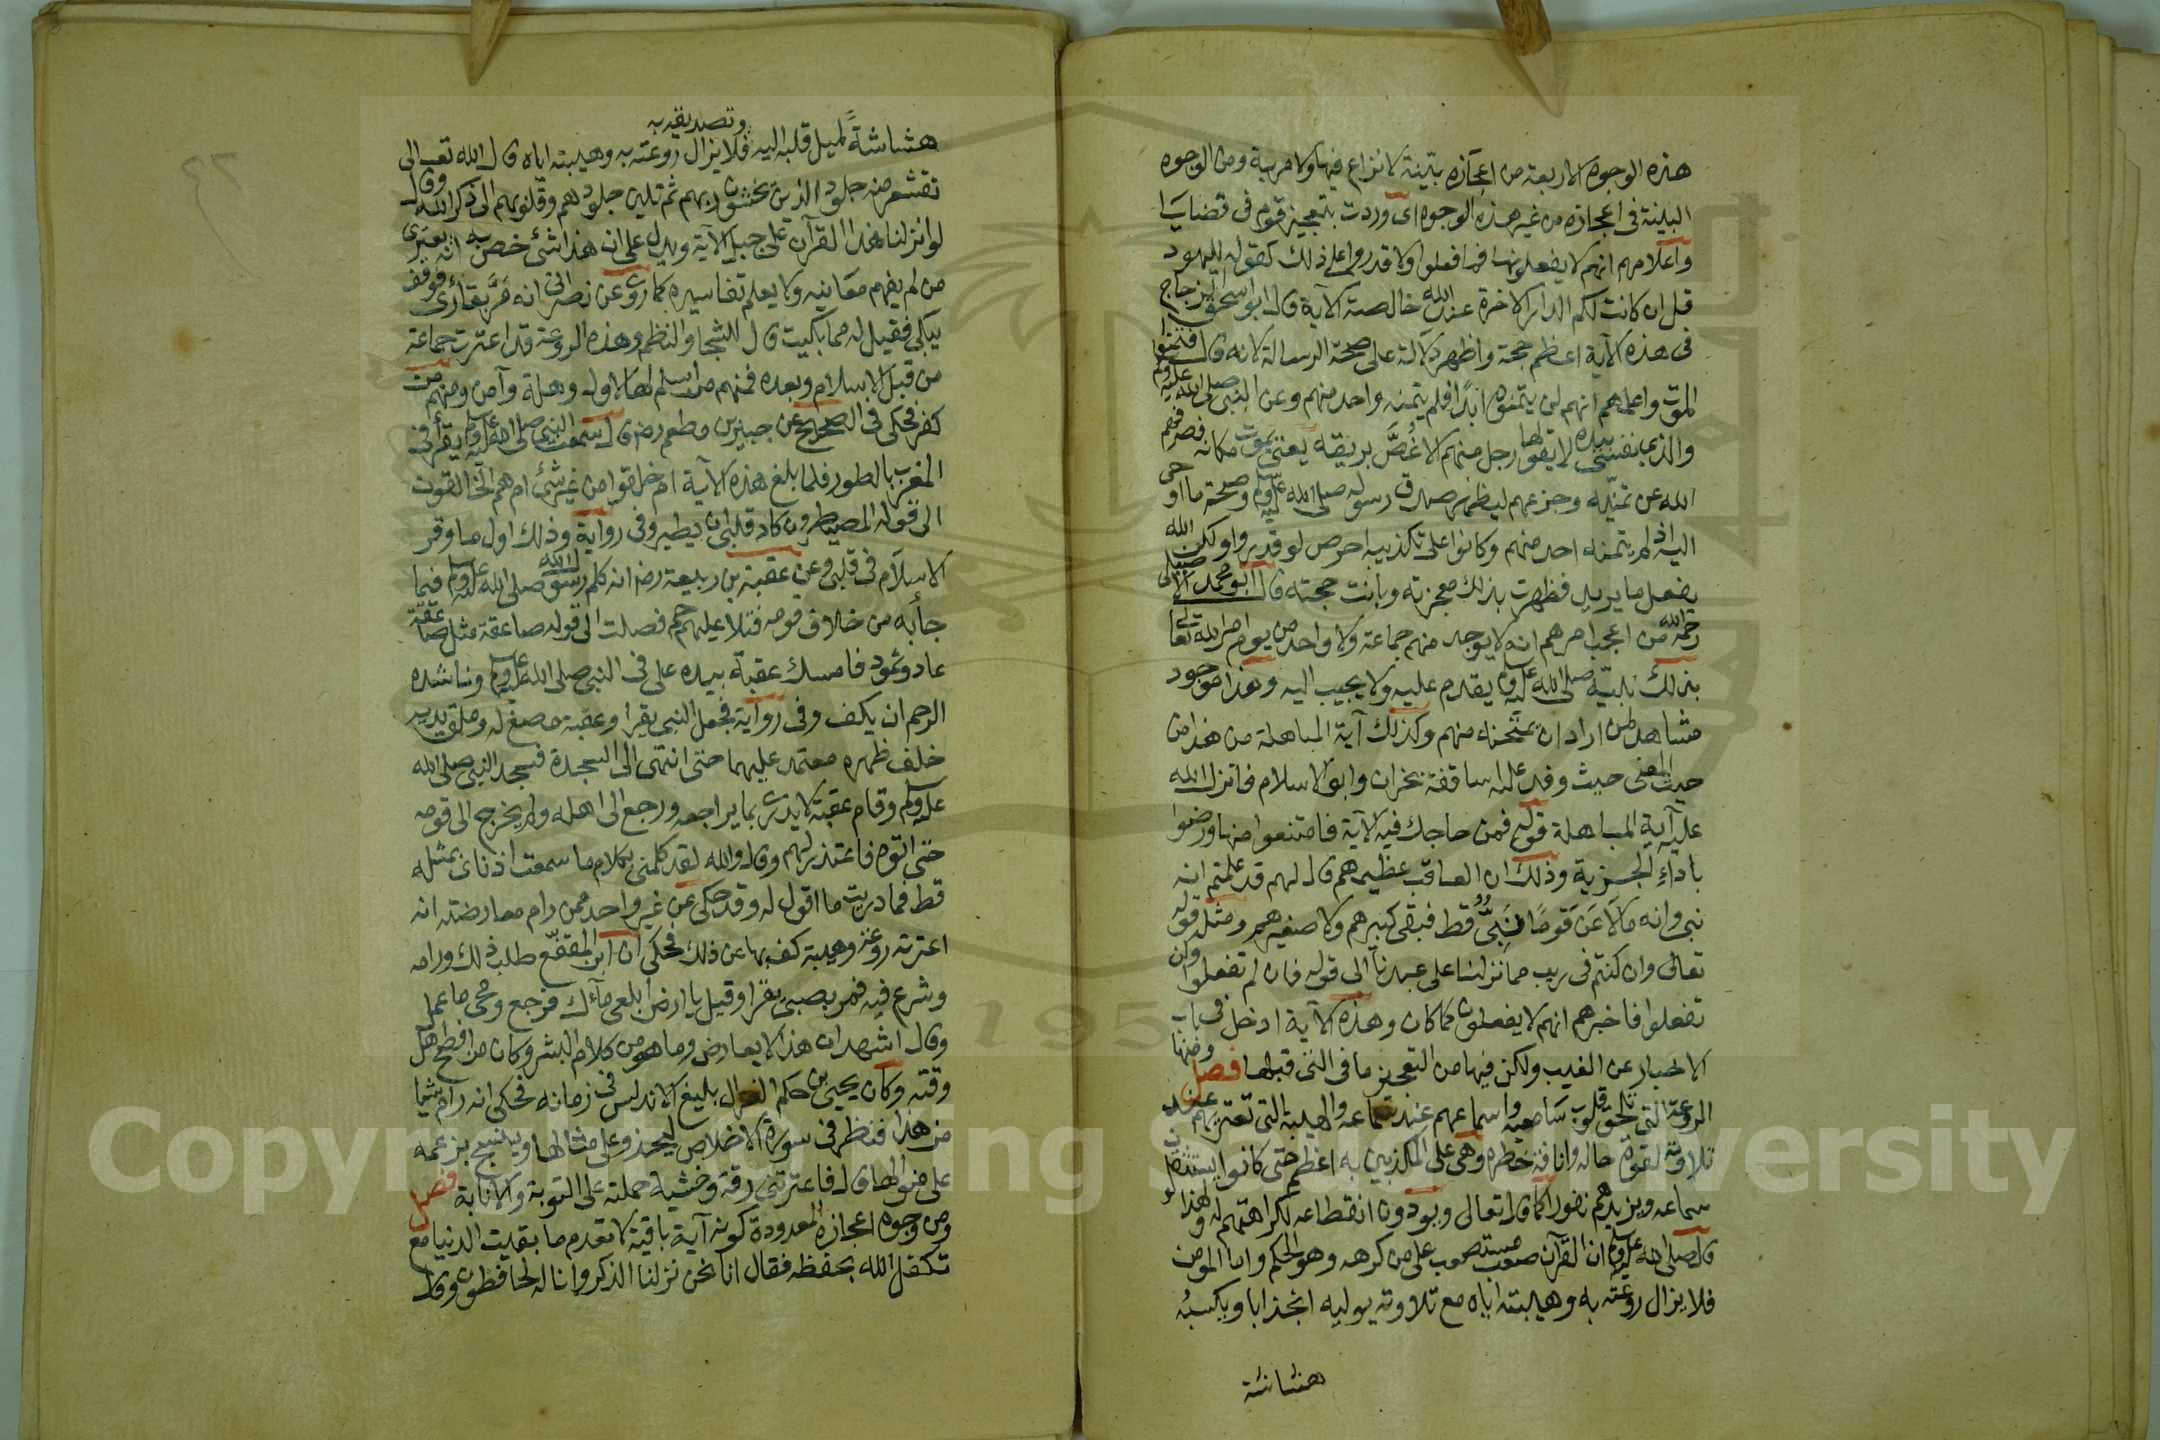 هذه الوجوه الاربعة من اعجازه بيّنة لا نزاع فيها ولا مرية ومن الوجوه
البينة فى اعجازه من غير هذه الوجوه اى وردت بتعجيز قوم فى قضايا
واعلامهم انهم لا يفعلونها فما فعلوا ولا قدروا على ذلك كقوله لليهود
قل ان كانت لكم الدار الاخرة عند الله خالصة الآية قال ابو اسحق الزجاج
فى هذه الآية اعظم حجة واظهر دلالة على صحة الرسالة لانه قال فتمنوا
الموت واعلمهم انهم لن يتمنوه ابدًا فلم يتمنه واحد منهم وعن النبى صلى الله عليه وسلم
والذى نفسى بيده لا يقولها رجل منهم الا غُصَّ بريقه يعنى يموت مكانه فصرفهم
الله عن تمنيه وجزعهم ليظهر صدق رسوله صلى الله عليه وسلم وصحة ما اوحى
اليه اذ لم يتمنه احد منهم وكانوا على تكذيبه احرص لو قدروا ولكن الله
يفعل ما يريد فظهرت بذلك معجزته وبانت حجته قال ابو محمد الاصيلى
رحمه الله من اعجب امرهم انه لا يوجد منهم جماعة ولا واحد من يوم امر الله تعالى
بذلك نبيّه صلى الله عليه وسلم يقدم عليه ولا يجيب اليه وهذا موجود
مشاهد لمن اراد ان يمتحنه منهم وكذلك آية المباهلة من هذا من
حيث المعنى حيث وفد عليه اساقفة نجران وابوا الاسلام فانزل الله
عليه آية المباهلة قوله فمن حاجك فيه الآية فامتنعوا منها ورضوا
باداءِ الجزية وذلك ان العاقب عظيمهم قال لهم قد علمتم انه
نبى وانه ما لاعَنَ قومًا نبىٌّ قط فبقى كبيرهم ولا صغيرهم ومثله قوله
تعالى وان كنتم فى ريب مما نزلنا على عبدنا الى قوله فان لم تفعلوا ولن
تفعلوا فاخبرهم انهم لا يفعلون كما كان وهذه الآية ادخل فى باب
الاخبار عن الغيب ولكن فيها من التعجيز ما فى التى قبلها فصل ومنها
الروعة التى تلحق قلوب سامعيه واسماعهم عند سماعه والهيبة التى تعتريهم عند
تلاوته لقوة حاله وانافة خطره وهى على المكذبين به اعظم حتى كانوا يستثقلون
سماعه ويزيدهم نفورا كما قال تعالى ويودون انقطاعه لكراهتهم له ولهذا
قال صلى الله عليه وسلم ان القرآن صعب مستصعب على من كرهه وهو الحكم واما المؤمن
فلا يزال روعته به وهيبته اياه مع تلاوته يوليه انجذابا ويكسبه
هشاشة
وتصديقه به
هشاشةً لميل قلبه اليه فلا يزال روعته به وهيبته اياه قال الله تعالى
تقشعر منه جلود الذين يخشون ربهم ثم تلين جلودهم وقلوبهم الى ذكر الله وقال
لو انزلنا هذا القرآن على جبل الآية ويدل على ان هذا شئ خص به انه يعترى
من لم يفهم معانيه ولا يعلم تفاسيره كما روى عن نصرانى انه مَرَّ بقارئ فوقف
يبكى فقيل له مما بكيت قال للشجا والنظم وهذه الروعة قد اعترت جماعة
من قبل الاسلام وبعده فمنهم من اسلم لها لاول وهلة وآمن ومنهم من
كفر فحكى فى الصحيح عن جبير بن مطعم رضه قال سمعت النبى صلى الله عليه وسلم يقرأ فى
المغرب بالطور فلما بلغ هذه الآية ام خلقوا من غير شئ ام هم الخالقون
الى قوله المصيطرون كاد قلبى ان يطير وفى رواية وذلك اول ما وقر
الاسلام فى قلبى وعن عقبة بن ربيعة رضه انه كلم رسول الله صلى الله عليه وسلم فيما
جاء به من خلاف قومه فتلا عليهم حم فصلت الى قوله صاعقة مثل صاعقة
عاد وثمود فامسك عقبة بيده على فى النبى صلى الله عليه وسلم وناشده
الرحم ان يكف وفى رواية فجعل النبى يقرا وعقبة مصغ له وملق يديه
خلف ظهره معتمد عليهما حتى انتهى الى السجدة فسجد النبى صلى الله
عليه وسلم وقام عقبة لا يدرى بما يراجعه ورجع الى اهله ولم يخرج الى قومه
حتى اتوه فاعتذر لهم وقال والله لقد كلمنى بكلام ما سمعت اذناى بمثله
قط فما دريت ما اقول له وقد حكى عن غير واحد ممن رام معارضته انه
اعترته روعة وهيبة كف بها عن ذلك فحكى ان ابن المقفّع طلب ذلك ورامه
وشرع فيه فمر بصبى يقرا وقيل يا ارض ابلعى ماءك فرجع ومحى ما عمل
وقال اشهد ان هذا لا يعارض وما هو من كلام البشر وكان من افصح اهل
وقته وكان يحيى بن حكم الغزال بليغ الاندلس فى زمانه فحكى انه رام شيئا
من هذا فنظر فى سورة الاخلاص ليحذو على مثالها وينسج بزعمه
على منوالها قال فاعترتنى رقة وخشية حملته على التوبة والانابة فصل
ومن وجوه اعجازه المعدودة كونه آية باقية لا تعدم ما بقيت الدنيا مع
تكفل الله بحفظه فقال انا نحن نزلنا الذكر وانا له لحافظون وقال
Copyright © King Saud University